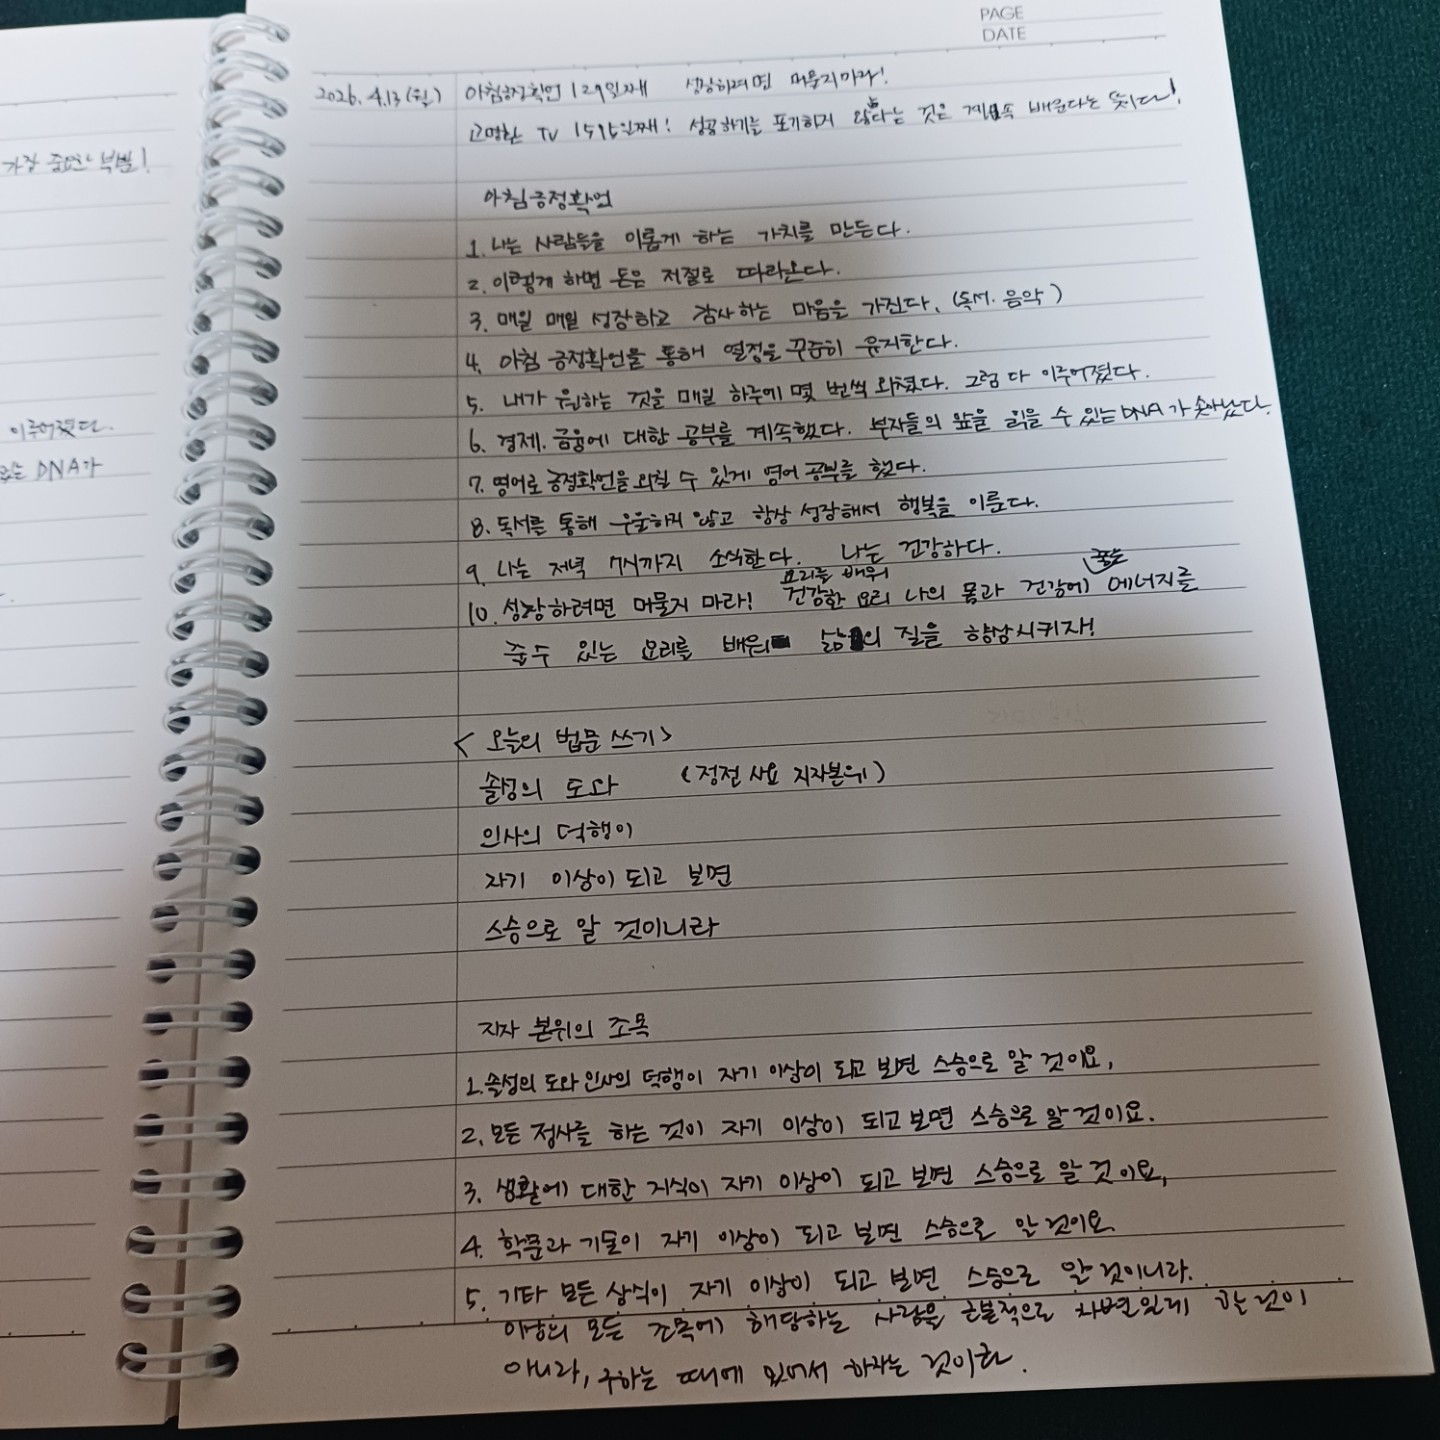 PAGE
DATE
가장 중요한 부분!
이루어졌다.
있는 DNA가
2026. 4.13 (월) 아침긍정확언 129일째 성장하려면 머물지마라!
고명환 TV 1595일째! 성공하기를 포기하지 않는다는 것은 계속 배운다는 뜻이다!
아침긍정확언
1. 나는 사람들을 이롭게 하는 가치를 만든다.
2. 이렇게 하면 돈은 저절로 따라온다.
3. 매일 매일 성장하고 감사하는 마음을 가진다. (독서. 음악)
4. 아침 긍정확언을 통해 열정을 꾸준히 유지한다.
5. 내가 원하는 것을 매일 하루에 몇 번씩 외쳤다. 그럼 다 이루어졌다.
6. 경제. 금융에 대한 공부를 계속했다. 부자들의 앞을 읽을 수 있는 DNA가 솟아났다.
7. 영어로 긍정확언을 외칠 수 있게 영어 공부를 했다.
8. 독서를 통해 우울하지 않고 항상 성장해서 행복을 이룬다.
9. 나는 저녁 7시까지 소식한다. 나는 건강하다.
요리를 배워
10. 성장하려면 머물지 마라! 건강한 요리 나의 몸과 건강에 좋은 에너지를
줄 수 있는 요리를 배워 삶의 질을 향상시키자!
< 오늘의 법문 쓰기>
솔성의 도와 (정전 사요 지자본위)
인사의 덕행이
자기 이상이 되고 보면
스승으로 알 것이니라
지자 본위의 조목
1. 솔성의 도와 인사의 덕행이 자기 이상이 되고 보면 스승으로 알 것이요,
2. 모든 정사를 하는 것이 자기 이상이 되고 보면 스승으로 알 것이요.
3. 생활에 대한 지식이 자기 이상이 되고 보면 스승으로 알 것이요,
4. 학문과 기술이 자기 이상이 되고 보면 스승으로 알 것이요.
5. 기타 모든 상식이 자기 이상이 되고 보면 스승으로 알 것이니라.
이상의 모든 조목에 해당하는 사람을 근본적으로 차별있게 할 것이
아니라, 구하는 때에 있어서 하자는 것이다.